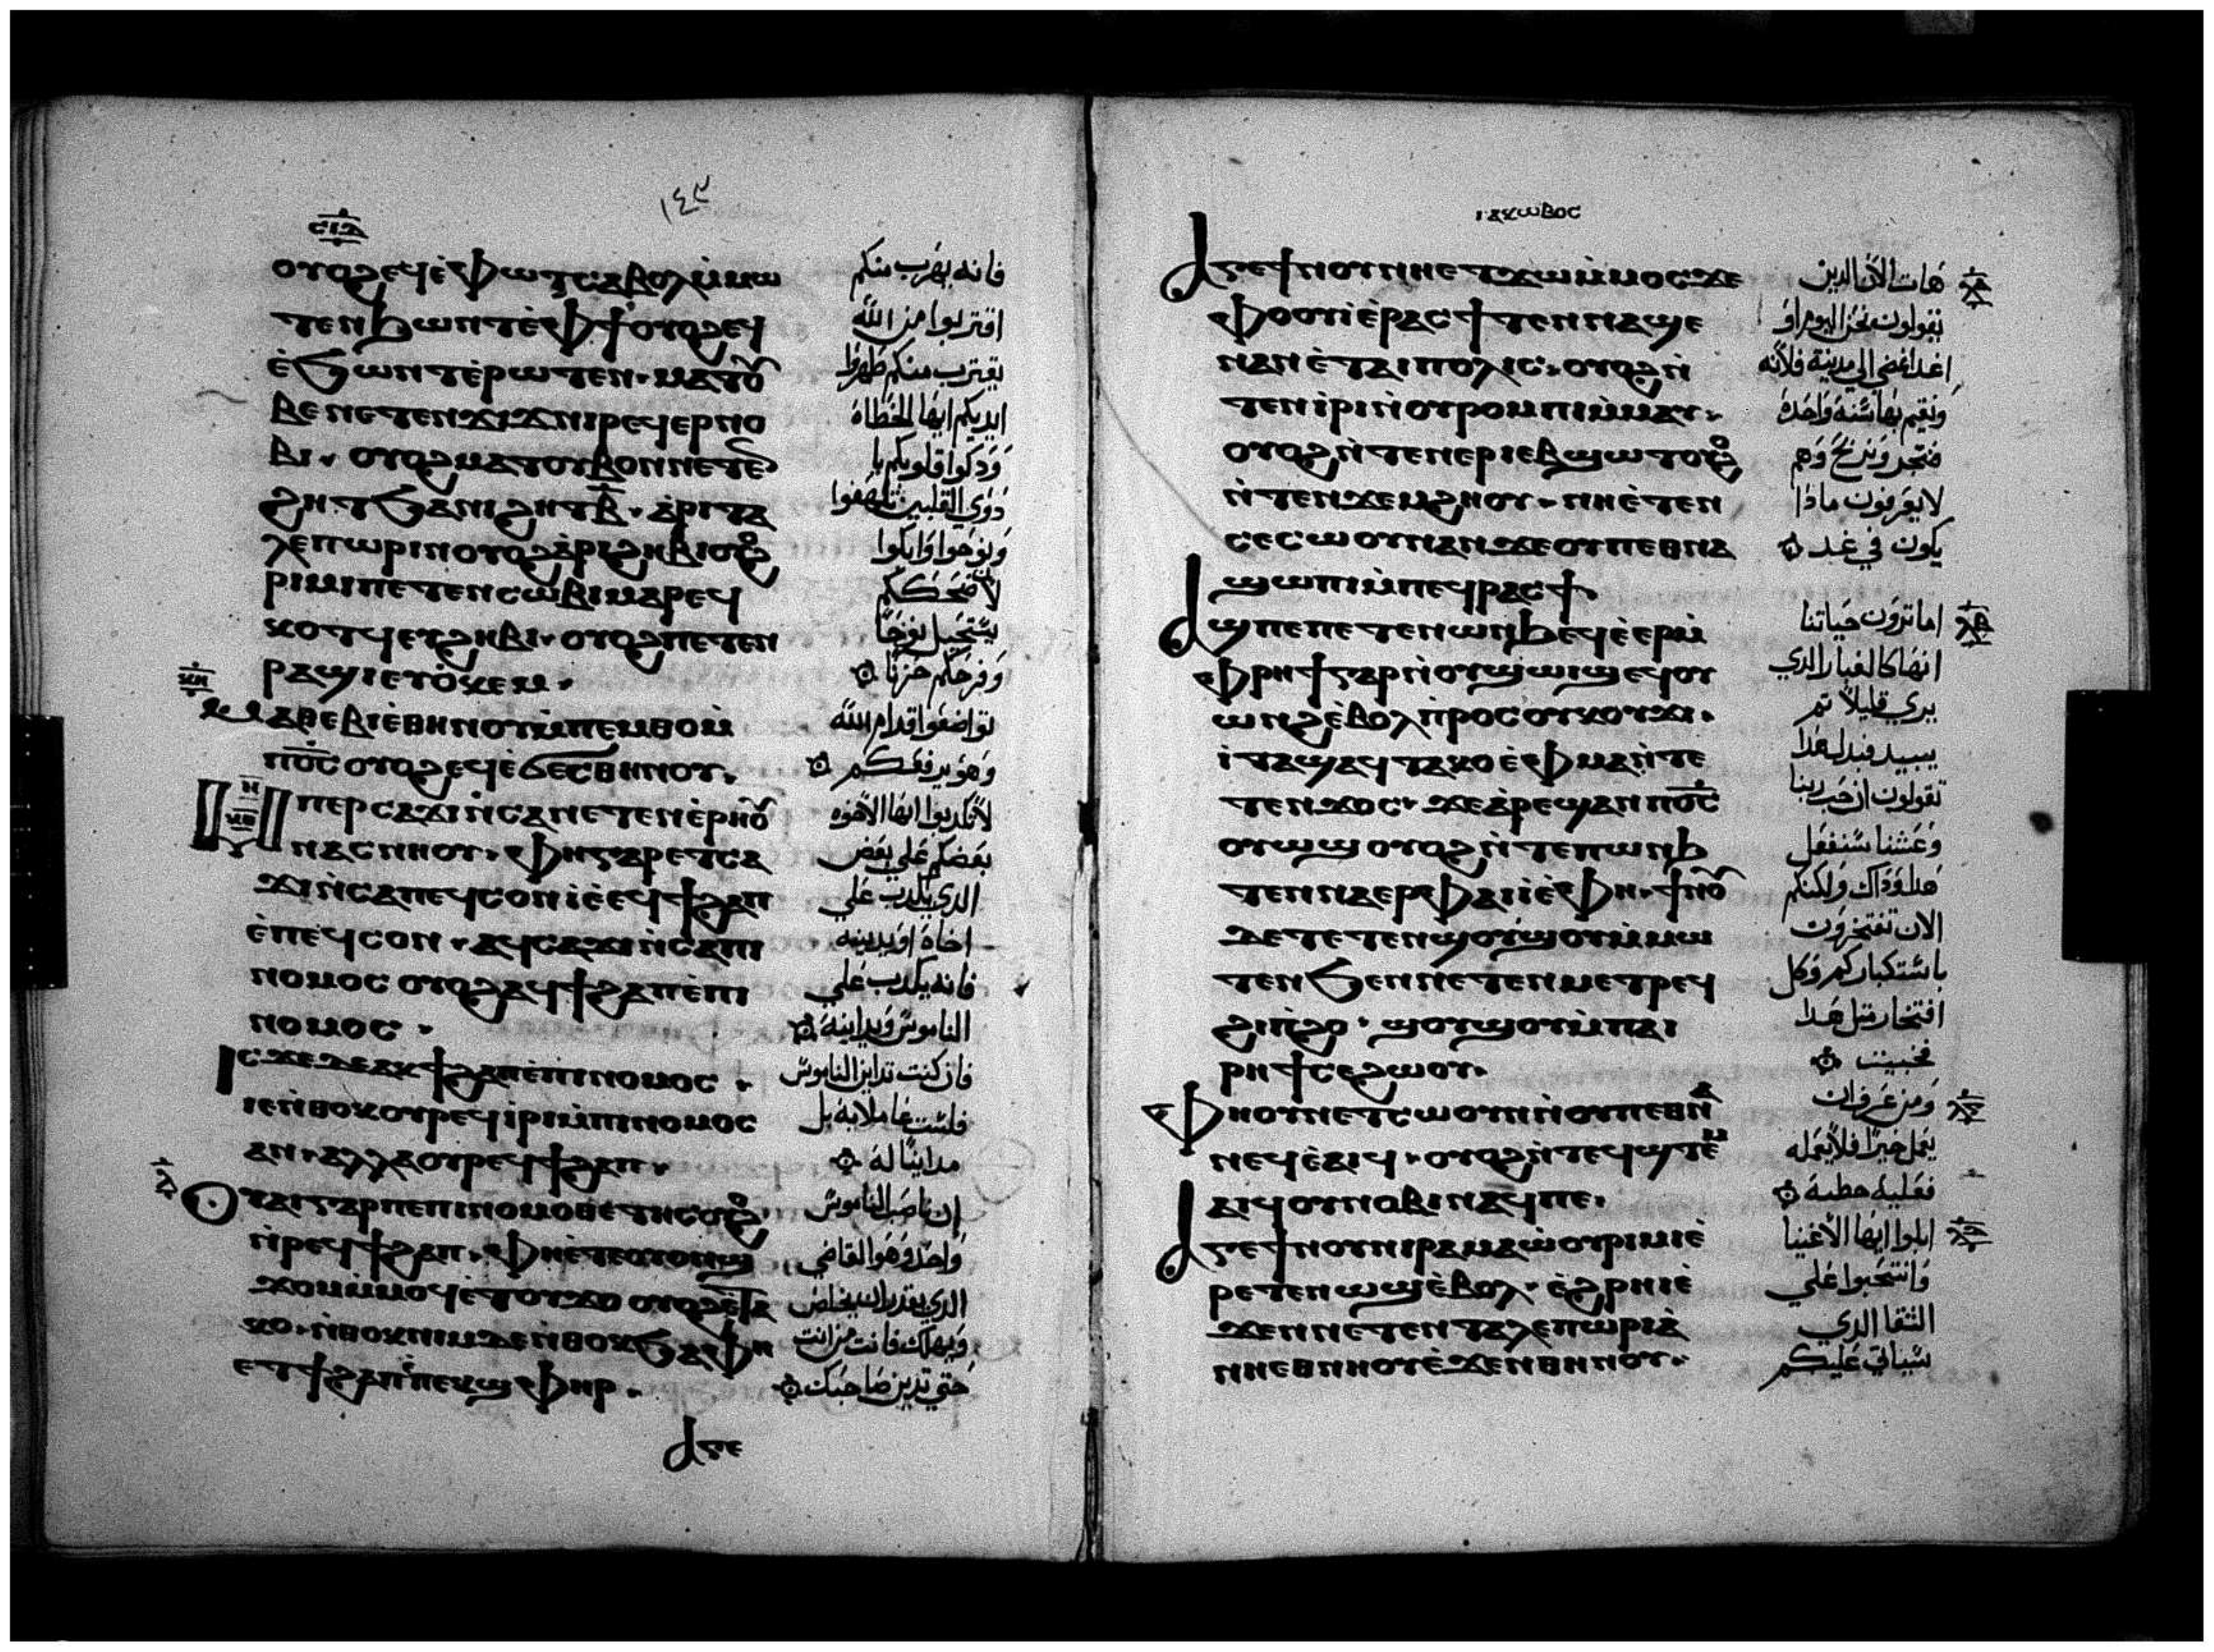 ⲥⲓⲇ
١٤٣
ⲟⲩⲟϩ ⲉϥⲉ̀ⲫⲱⲧ ⲥⲁⲃⲟⲗ ⲙ̀ⲙⲱ
ⲧⲉⲛ ϧⲱⲛⲧ ⲉ̀ⲫϯ ⲟⲩⲟϩ ⲉϥ
ⲉ̀ϧⲱⲛⲧ ⲉ̀ⲣⲱⲧⲉⲛ. ⲙⲁⲧⲟⲩ
ⲃⲉ ⲛⲉⲧⲉⲛϫⲓϫ ⲛⲓⲣⲉϥⲉⲣⲛⲟ
ⲃⲓ. ⲟⲩⲟϩ ⲙⲁⲧⲟⲩⲃⲟ ⲛⲛⲉⲧⲉⲛ
ϩⲏⲧ ϧⲁ ⲛⲓϩⲏⲧ ⲃ̅. ⲁ̀ⲣⲓⲧⲁ
ⲗⲉⲡⲱⲣⲓⲛ ⲟⲩⲟϩ ⲁ̀ⲣⲓϩⲏⲃⲓ ⲟⲩⲟϩ
ⲣⲓⲙⲓ ⲡⲉⲧⲉⲛⲥⲱⲃⲓ ⲙⲁⲣⲉϥ
ⲕⲟⲧϥ ⲉⲩϩⲏⲃⲓ. ⲟⲩⲟϩ ⲡⲉⲧⲉⲛ
ⲣⲁϣⲓ ⲉⲩⲟ̀ⲕⲉⲙ.
ⲕⲏ
ⲙⲁⲑⲉⲃⲓⲉ̀ ⲑⲏⲛⲟⲩ ⲙ̀ⲡⲉⲙⲑⲟ ⲙ̀
ⲡⲟ̅ⲥ̅ ⲟⲩⲟϩ ⲉϥⲉ̀ϭⲉⲥ ⲑⲏⲛⲟⲩ.
ⲙⲡⲉⲣⲥⲁϫⲓ ⲛ̀ⲥⲁ ⲛⲉⲧⲉⲛⲉ̀ⲣⲏⲟⲩ
ⲛⲁⲥⲛⲏⲟⲩ. ⲫⲏ ⲅⲁⲣ ⲉⲧⲥⲁ
ϫⲓ ⲛ̀ⲥⲁ ⲡⲉϥⲥⲟⲛ ⲓⲉ̀ ⲉϥϯϩⲁⲡ
ⲉ̀ⲡⲉϥⲥⲟⲛ. ⲁϥⲥⲁϫⲓ ⲛ̀ⲥⲁ ⲡⲓ
ⲛⲟⲙⲟⲥ ⲟⲩⲟϩ ⲁϥϯϩⲁⲡ ⲉ̀ⲡⲓ
ⲛⲟⲙⲟⲥ.
ⲓⲥϫⲉ ⲇⲉ ⲁⲕϯϩⲁⲡ ⲉ̀ⲡⲓⲛⲟⲙⲟⲥ.
ⲓⲉ ⲛ̀ⲑⲟⲕ ⲟⲩⲣⲉϥⲓ̀ⲣⲓ ⲙ̀ⲡⲓⲛⲟⲙⲟⲥ
ⲁⲛ. ⲁⲗⲗⲁ ⲟⲩⲣⲉϥϯϩⲁⲡ.
ⲗ
ⲟⲩⲁⲓ ⲅⲁⲣ ⲡⲉ ⲡⲓⲛⲟⲙⲟⲑⲉⲧⲏⲥ ⲟⲩⲟϩ
ⲛ̀ⲣⲉϥϯϩⲁⲡ. ⲫⲏ ⲉ̀ⲧⲉ ⲟⲩⲟⲛϣ
ϫⲟⲙ ⲙ̀ⲙⲟϥ ⲉ̀ⲧⲟⲩϫⲟ ⲟⲩⲟϩ ⲉ̀ⲧⲁ
ⲕⲟ. ⲛ̀ⲑⲟⲕ ⲛⲓⲙ ⲇⲉ ⲛ̀ⲑⲟⲕ ϧⲁ ⲫⲏ
ⲉⲧϯϩⲁⲡ ⲉ̀ⲡⲉⲕϣⲫⲏⲣ.
ⲁⲅⲉ
فانه يهرب منكم
اقتربوا من الله
يقترب منكم طهروا
ايديكم ايها الخطاه
وذكوا قلوبكم يا
ذوي القلبين تلهفوا
ونوحوا وابكوا
لان ضحككم
يستحيل نوحًا
وفرحكم حزنًا
تواضعوا قدام الله
وهو يرفعكم
لا تكذبوا ايها الاخوه
بعضكم علي بعض
الذي يكذب علي
اخاه او يدينه
فانه يكذب علي
الناموس ويداينه
فان كنت تداين الناموس
فلست عاملا به بل
مداينًا له
ان ناصب الناموس
واحد وهو القاضي
الذي يقدر ان يخلص
ويهلك فانت من انت
حتي تدين صاحبك
ⲓⲁⲕⲱⲃⲟⲥ
ⲁⲅⲉ ϯⲛⲟⲩ ⲛⲏ ⲉⲧϫⲱ ⲙ̀ⲙⲟⲥ ϫⲉ
ⲫⲟⲟⲩ ⲓⲉ̀ ⲣⲁⲥϯ ⲧⲉⲛⲛⲁϣⲉ
ⲛⲁⲛ ⲉ̀ⲧⲁⲓⲡⲟⲗⲓⲥ. ⲟⲩⲟϩ ⲛ̀
ⲧⲉⲛⲓ̀ⲣⲓ ⲛ̀ⲟⲩⲣⲟⲙⲡⲓ ⲙ̀ⲙⲁⲩ.
ⲟⲩⲟϩ ⲛ̀ⲧⲉⲛⲉⲣⲓⲉⲃϣⲱⲧ ⲟⲩⲟϩ
ⲛ̀ⲧⲉⲛϫⲉⲙϩⲏⲟⲩ. ⲛⲏ ⲉ̀ⲧⲉⲛ
ⲥⲉⲥⲱⲟⲩⲛ ⲁⲛ ϫⲉ ⲟⲩ ⲡⲉⲑⲛⲁ
ϣⲱⲡⲓ ⲙ̀ⲡⲉϥⲣⲁⲥϯ.
ⲁϣ ⲡⲉ ⲡⲉⲧⲉⲛⲱⲛϧ ⲉϥⲉ̀ⲉⲣ ⲙ̀
ⲫⲣⲏϯ ⲅⲁⲣ ⲛ̀ⲟⲩϣⲱⲓϣ ⲉϥⲟⲩ
ⲱⲛϩ ⲉ̀ⲃⲟⲗ ⲡ̀ⲣⲟⲥ ⲟⲩⲕⲟⲩϫⲓ.
ⲓⲧⲁ ϣⲁϥⲧⲁⲕⲟ ⲉ̀ⲫⲙⲁ ⲛ̀ⲧⲉ
ⲧⲉⲛϫⲟⲥ. ϫⲉ ⲁ̀ⲣⲉϣⲁⲛ ⲡⲟ̅ⲥ̅
ⲟⲩⲱϣ ⲟⲩⲟϩ ⲛ̀ⲧⲉⲛⲱⲛϧ
ⲧⲉⲛⲛⲁⲉⲣ ⲫⲁⲓ ⲓⲉ̀ ⲫⲏ. ϯⲛⲟⲩ
ⲇⲉ ⲧⲉⲧⲉⲛϣⲟⲩϣⲟⲩ ⲙ̀ⲙⲱ
ⲧⲉⲛ ϧⲉⲛ ⲛⲉⲧⲉⲛⲙⲉⲧⲣⲉϥ
ϩⲓⲡ̀ϩⲟ. ϣⲟⲩϣⲟⲩ ⲙ̀ⲡⲁⲓ
ⲣⲏϯ ⲥⲉϩⲱⲟⲩ.
ⲫⲏ ⲟⲩⲛ ⲉⲧⲥⲱⲟⲩⲛ ⲛ̀ⲟⲩⲡⲉⲑⲛⲁ
ⲛⲉϥ ⲉ̀ⲁⲓϥ. ⲟⲩⲟϩ ⲛ̀ⲧⲉϥϣⲧⲉⲙ
ⲁⲓϥ ⲟⲩⲛⲟⲃⲓ ⲛⲁϥ ⲡⲉ.
ⲁⲅⲉ ϯⲛⲟⲩ ⲛⲓⲣⲁⲙⲁⲱ̀ⲟⲩ ⲣⲓⲙⲓ ⲉ̀
ⲣⲉⲧⲉⲛⲱϣ ⲉ̀ⲃⲟⲗ. ⲉ̀ϩⲣⲏⲓ ⲉ̀
ϫⲉⲛ ⲛⲉⲧⲉⲛⲧⲁⲗⲉⲡⲱⲣⲓⲁ̀
ⲛⲏ ⲉⲑⲛⲏⲟⲩ ⲉ̀ϫⲉⲛ ⲑⲏⲛⲟⲩ.
هات الان الذين
يقولون نحن اليوم او
غدا نمضي الي مدينة فلانه
ونقيم بها سنة واحدة
نتجر ونربح وهم
لا يعرفون ماذا
يكون في غد
اما ترون حياتنا
انها كالغبار الذي
يري قليلا ثم
يبيد فبدل هذا
تقولون ان حب ربنا
وعشنا سنفعل
هذا وذاك ولكنكم
الان تفتخرون
باستكباركم وكل
افتخار مثل هذا
فخبيث
ومن عرف ان
يعمل خيرًا فلا يعمله
فعليه خطية
ابكوا ايها الاغنيا
وانتحبوا علي
الشقا الذي
سياتي عليكم